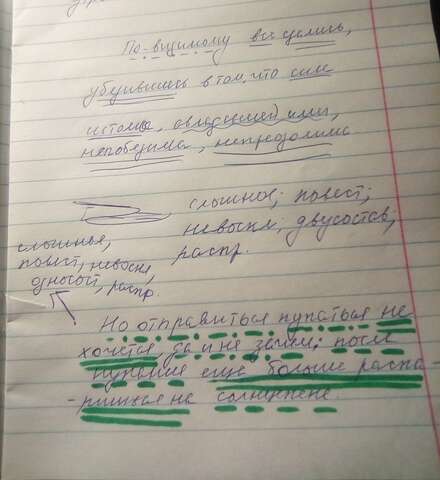 По-видимому все сдались,
убедившись в том, что сила
истомы, овладевшей ими,
непобедима, непреодолима
сложное; повест;
невоскл; двусостав,
распр.
сложная,
повест, невоскл,
односост, распр.
Но отправиться купаться не
хочется, да и не зачем; после
купания еще больше распа-
-ришься на солнцепеке.